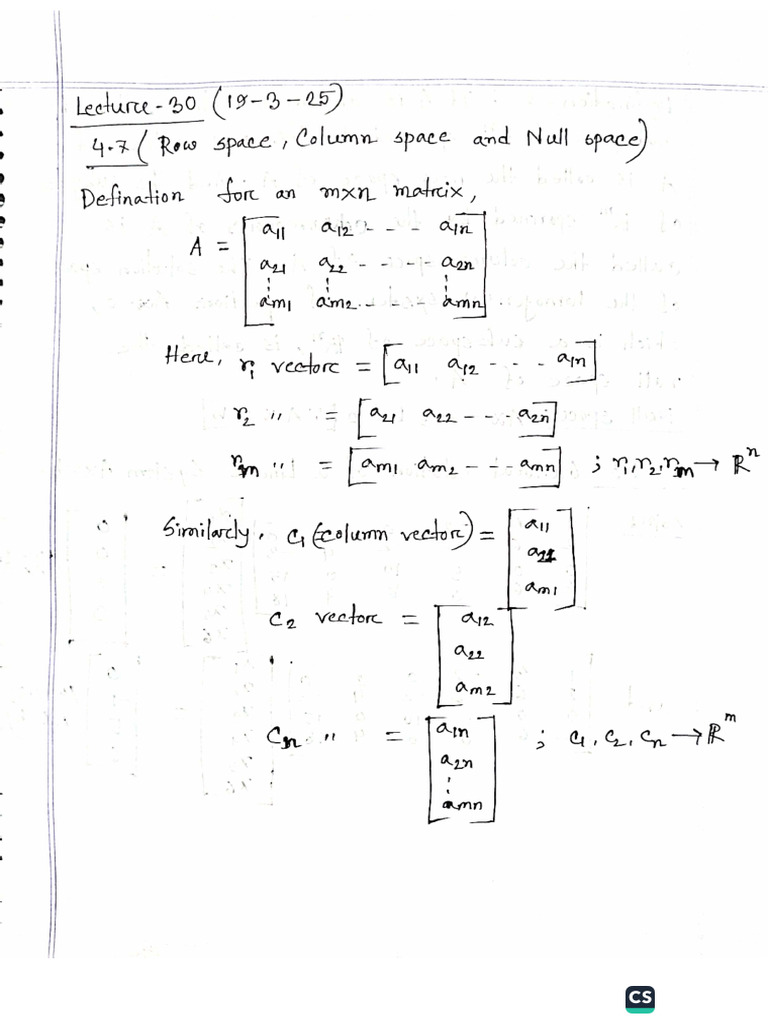 Lecture-30 (19-3-25)
4.7 ( Row space, Column space and Null space)
Defination for an m×n matrix,
A = [ a11 a12 - - - a1n
a21 a22 - - - - a2n
⋮ ⋮ ⋮
am1 am2 - - - - amn ]
Here, r1 vector = [ a11 a12 - - - a1n ]
r2 " = [ a21 a22 - - - a2n ]
rm " = [ am1 am2 - - - amn ] ; r1, r2, rm → ℝ^n
Similarly, c1 (column vector) = [ a11
a21
am1 ]
c2 vector = [ a12
a22
am2 ]
cn " = [ a1n
a2n
⋮
amn ] ; c1, c2, cn → ℝ^m
CS